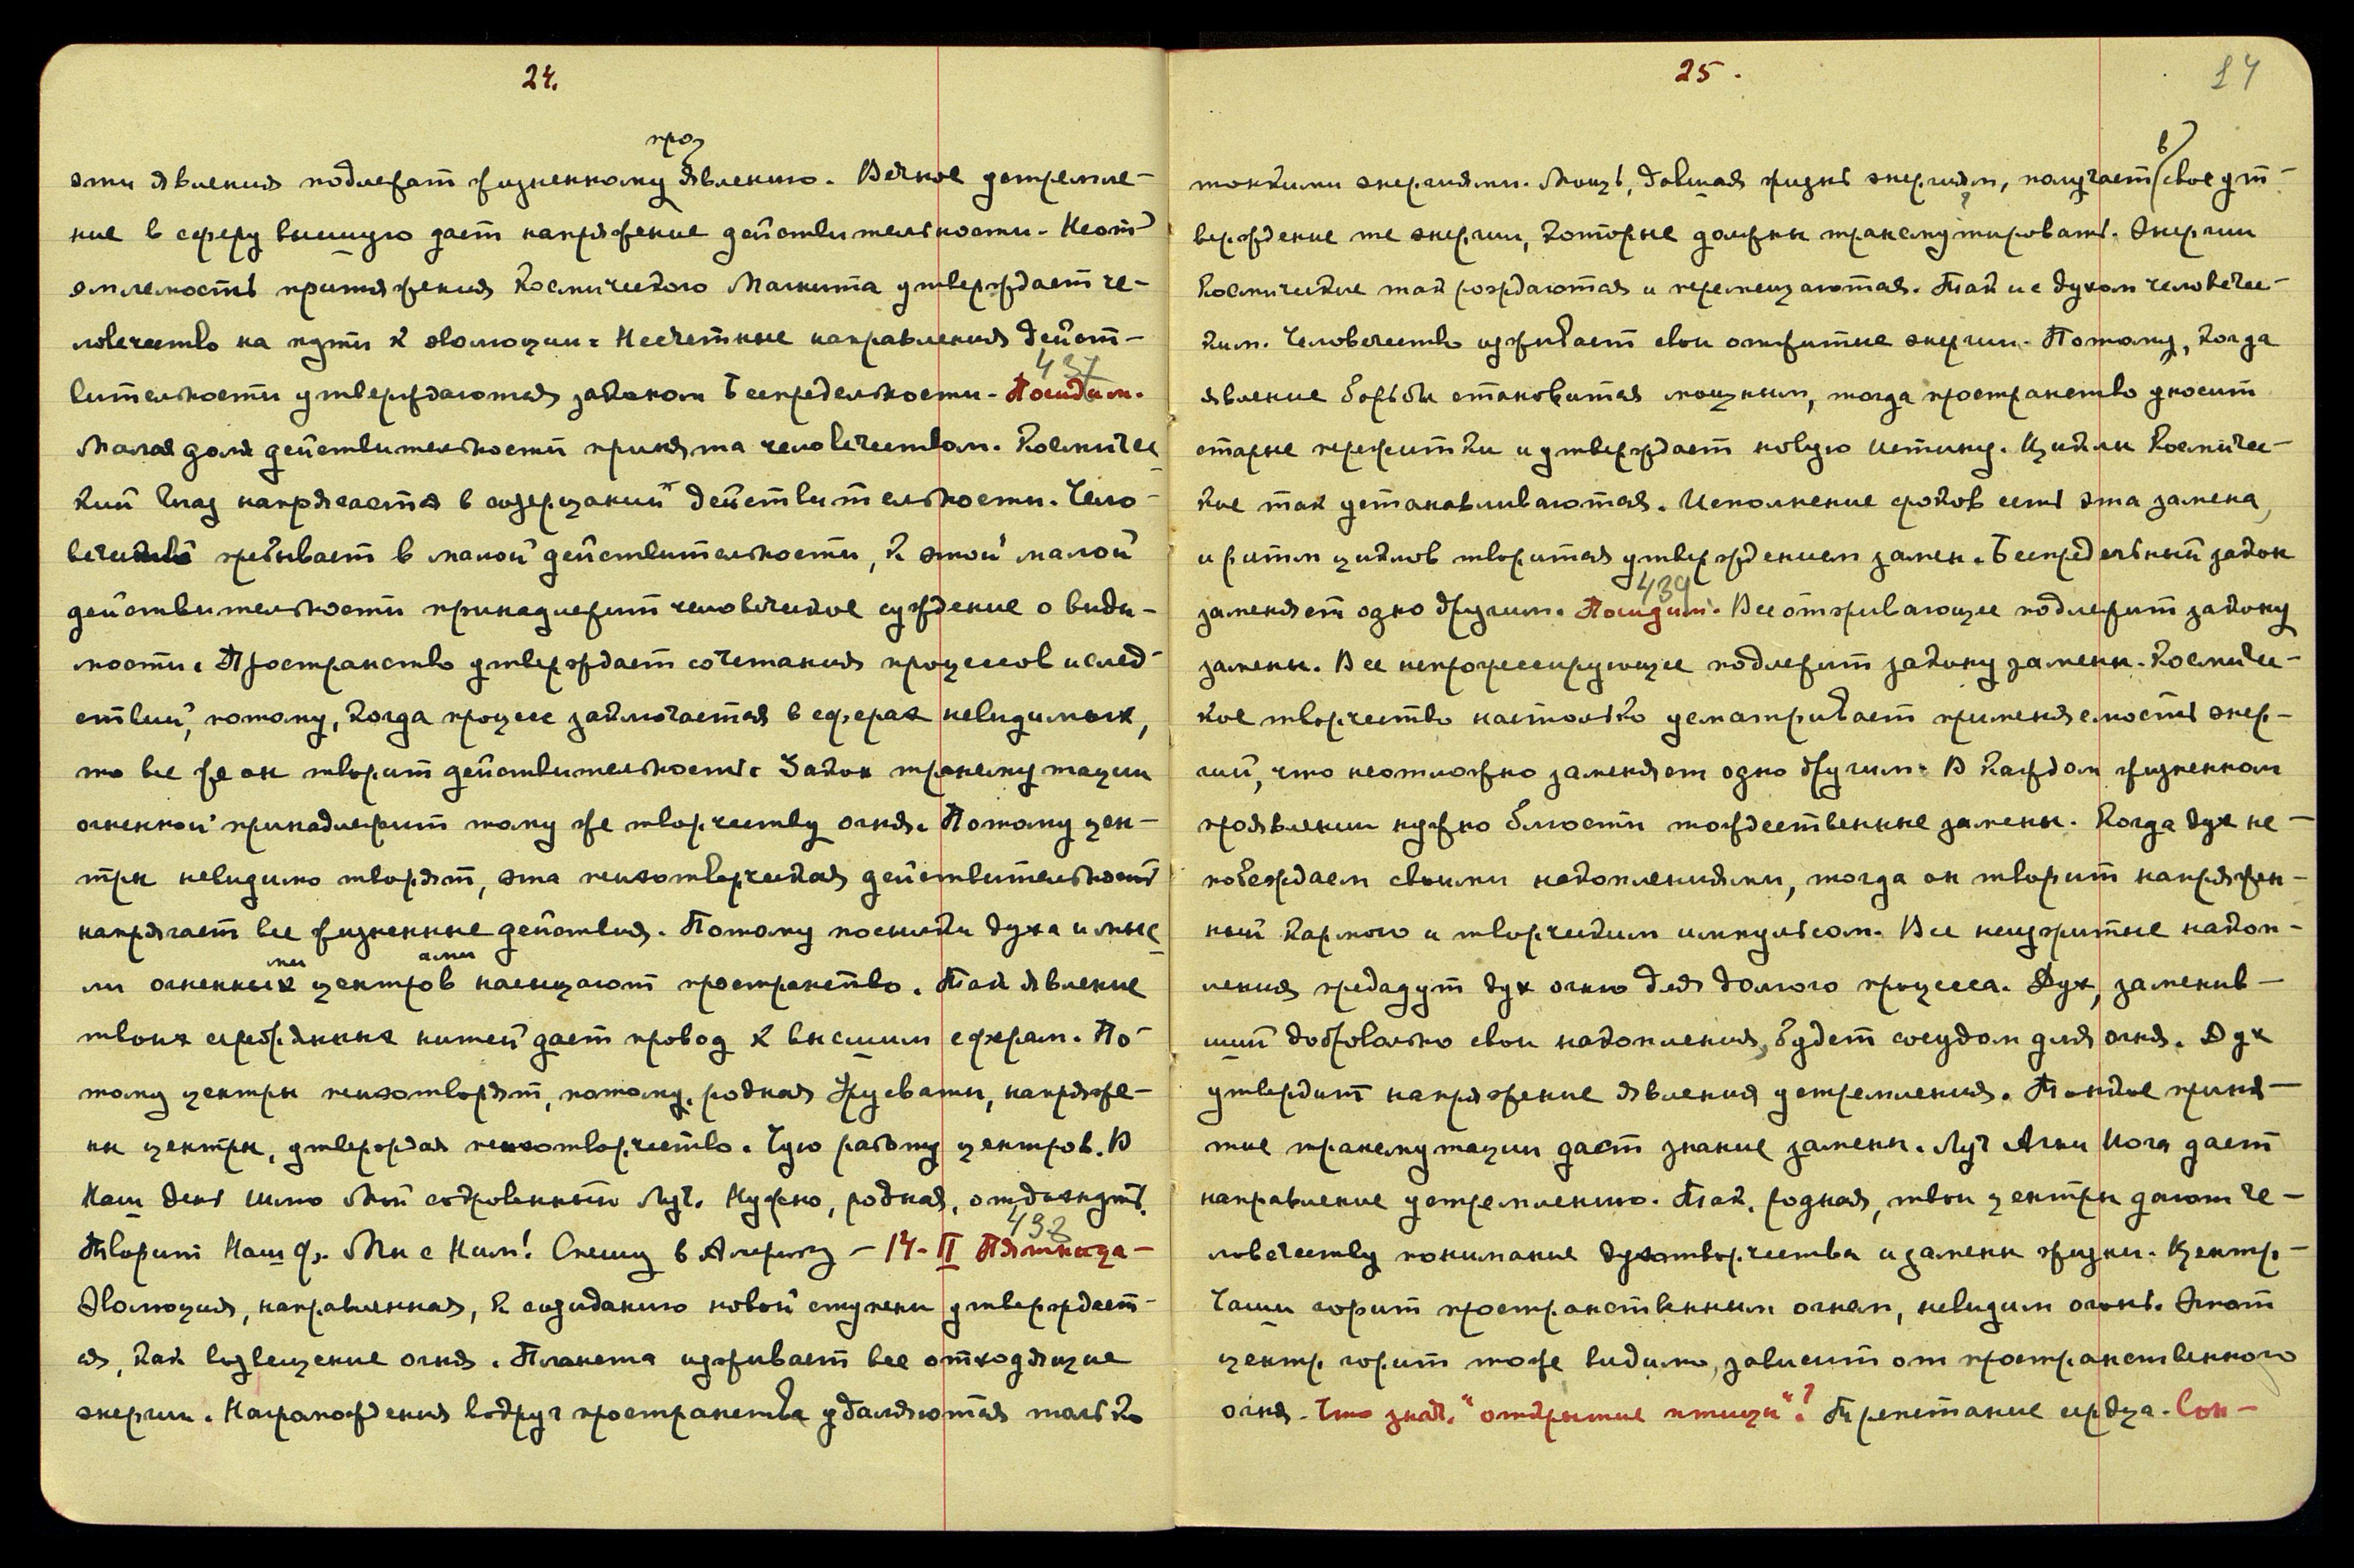 24.
про
эти явления подлежат жизненному явлению. Вечное устремле-
ние в сферу высшую дает напряжение действительности. Неот-
емлемость притяжения Космического Магнита утверждает че-
ловечество на пути к эволюции. Несчетные направления дейст-
437
вительности утверждаются законом Беспредельности. Посидим.
Малая доля действительности принята человечеством. Космичес
кий Глаз напрягается в созерцании действительности. Чело-
вечество пребывает в малой действительности, к этой малой
действительности принадлежит человеческое суждение о види-
мости. Пространство утверждает сочетания процессов и след-
ствий, потому, когда процесс заключается в сферах невидимых,
то все же он творит действительность. Закон трансмутации
огненной принадлежит тому же творчеству огня. Потому цен-
тры невидимо творят, эта психотворческая действительность
напрягает все жизненные действия. Потому посылки духа и мыс
ми ами
ли огненных центров насыщают пространство. Так явление
твоих серебряных нитей дает провод к высшим сферам. По-
тому центры психотворят, потому, родная Урусвати, напряже-
ны центры, утверждая психотворчество. Чую работу центров. В
Наш день шлю Мой сокровенный Луч. Нужно, родная, отдохнуть.
438
Творит Наш Ф. Мы с Ним! Спешу в Америку — 14-II Пятница —
Эволюция, направленная, к созиданию новой ступени утверждает-
ся, как возвещение огня. Планета изживает все отходящие
энергии. Нагромождения вокруг пространства удаляются только
25.
14
в
тонкими энергиями. Мощь, давшая жизнь энергиям, получает свое ут-
верждение те энергии, которые должны трансмутировать. Энергии
космические так рождаются и перемещаются. Так и с духом человечес-
ким. Человечество изживает свои отжитые энергии. Потому, когда
явление борьбы становится мощным, тогда пространство уносит
старые пережитки и утверждает новую Истину. Циклы Космичес-
кие так устанавливаются. Исполнение сроков есть эта замена,
и ритм циклов творится утверждением замен. Беспредельный закон
439
заменяет одно другим. Посидим. Все отживающее подлежит закону
замены. Все непрогрессирующее подлежит закону замены. Космичес-
кое творчество настолько усматривает применяемость энер-
гий, что неотложно заменяет одно другим. В каждом жизненном
проявлении нужно блюсти тождественные замены. Когда дух не-
побеждаем своими накоплениями, тогда он творит напряжен-
ный кармою и творческим импульсом. Все неизжитые накоп-
ления предадут дух огню для долгого процесса. Дух, заменив-
ший добровольно свои накопления, будет сосудом для огня. Дух
утвердит напряжение явления устремления. Тонкое приня-
тие трансмутации даст знание замены. Луч Агни Йога дает
направление устремлению. Так, родная, твои центры дают че-
ловечеству понимание духотворчества и замены жизни. Центр-
Чаши горит пространственным огнем, невидим огонь. Этот
центр горит тоже видимо, зависит от пространственного
огня. Что знач. "открытие птицы"? Трепетание сердца. Сон-